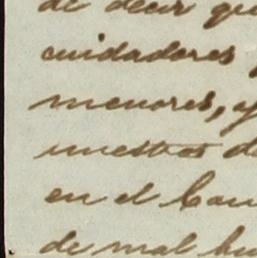 de decir que
cuidadores
menores, y
nuestros de
en el Cam
de mal hu